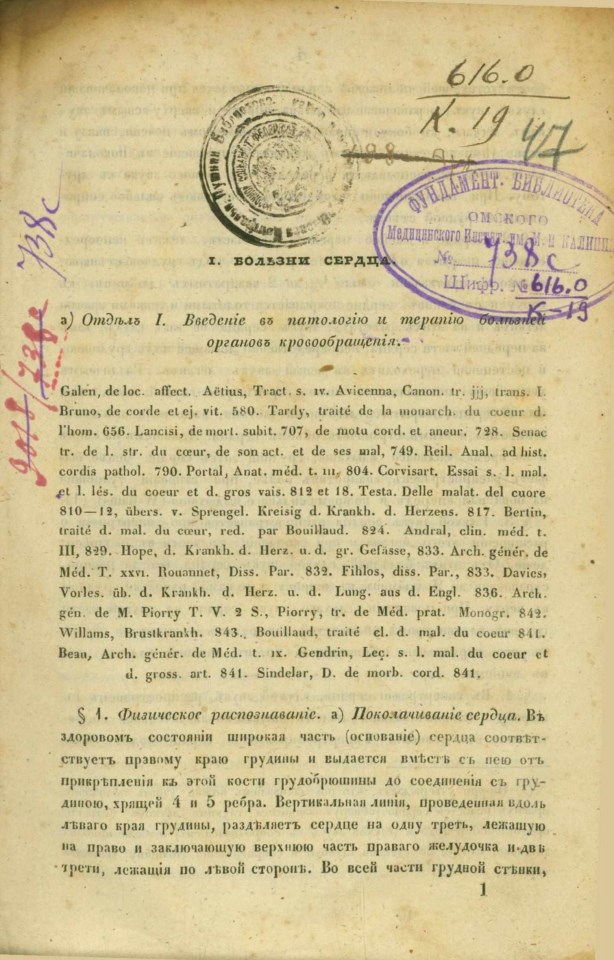 616.0
К. 19
47
ФУНДАМЕНТ. БИБЛИОТЕКА
ОМСКОГО
Медицинского Института им. М. И. КАЛИНИНА
№ 738с
Шифр. № 616.0
К-19
738с
2018/738с
I. БОЛѢЗНИ СЕРДЦА.
а) Отдѣлъ I. Введеніе въ патологію и терапію болѣзней
органовъ кровообращенія.
Galen, de loc. affect. Aëtius, Tract. s. IV. Avicenna, Canon. tr. jjj, trans. I.
Bruno, de corde et ej. vit. 580. Tardy, traité de la monarch. du coeur d.
l'hom. 656. Lancisi, de mort. subit. 707, de motu cord. et aneur. 728. Senac
tr. de l. str. du cœur, de son act. et de ses mal, 749. Reil. Anal. ad hist.
cordis pathol. 790. Portal, Anat. méd. t. III, 804. Corvisart. Essai s. l. mal.
et l. lés. du coeur et d. gros vais. 812 et 18. Testa. Delle malat. del cuore
810—12, übers. v. Sprengel. Kreisig d. Krankh. d. Herzens. 817. Bertin,
traité d. mal. du cœur, red. par Bouillaud. 824. Andral, clin. méd. t.
III, 829. Hope, d. Krankh. d. Herz. u. d. gr. Gefässe, 833. Arch. génér. de
Méd. T. XXVI. Rouannet, Diss. Par. 832. Fihlos, diss. Par., 833. Davies,
Vorles. üb. d. Krankh. d. Herz. u. d. Lung. aus d. Engl. 836. Arch.
gén. de M. Piorry T. V. 2 S., Piorry, tr. de Méd. prat. Monogr. 842.
Willams, Brustkrankh. 843. Bouillaud, traité cl. d. mal. du coeur 841.
Beau, Arch. génér. de Méd. t. IX. Gendrin, Leç. s. l. mal. du coeur et
d. gross. art. 841. Sindelar, D. de morb. cord. 841.
§ 1. Физическое распознаваніе. а) Поколачиваніе сердца. Въ
здоровомъ состояніи широкая часть (основаніе) сердца соотвѣт-
ствуетъ прэвому краю грудины и выдается вмѣстѣ съ нею отъ
прикрѣпленія къ этой кости грудобрюшины до соединенія съ гру-
диною, хрящей 4 и 5 ребра. Вертикальная линія, проведенная вдоль
лѣваго края грудины, раздѣляетъ сердце на одну треть, лежащую
на право и заключающую верхнюю часть праваго желудочка и двѣ
трети, лежащія по лѣвой сторонѣ. Во всей части грудной стѣнки,
1